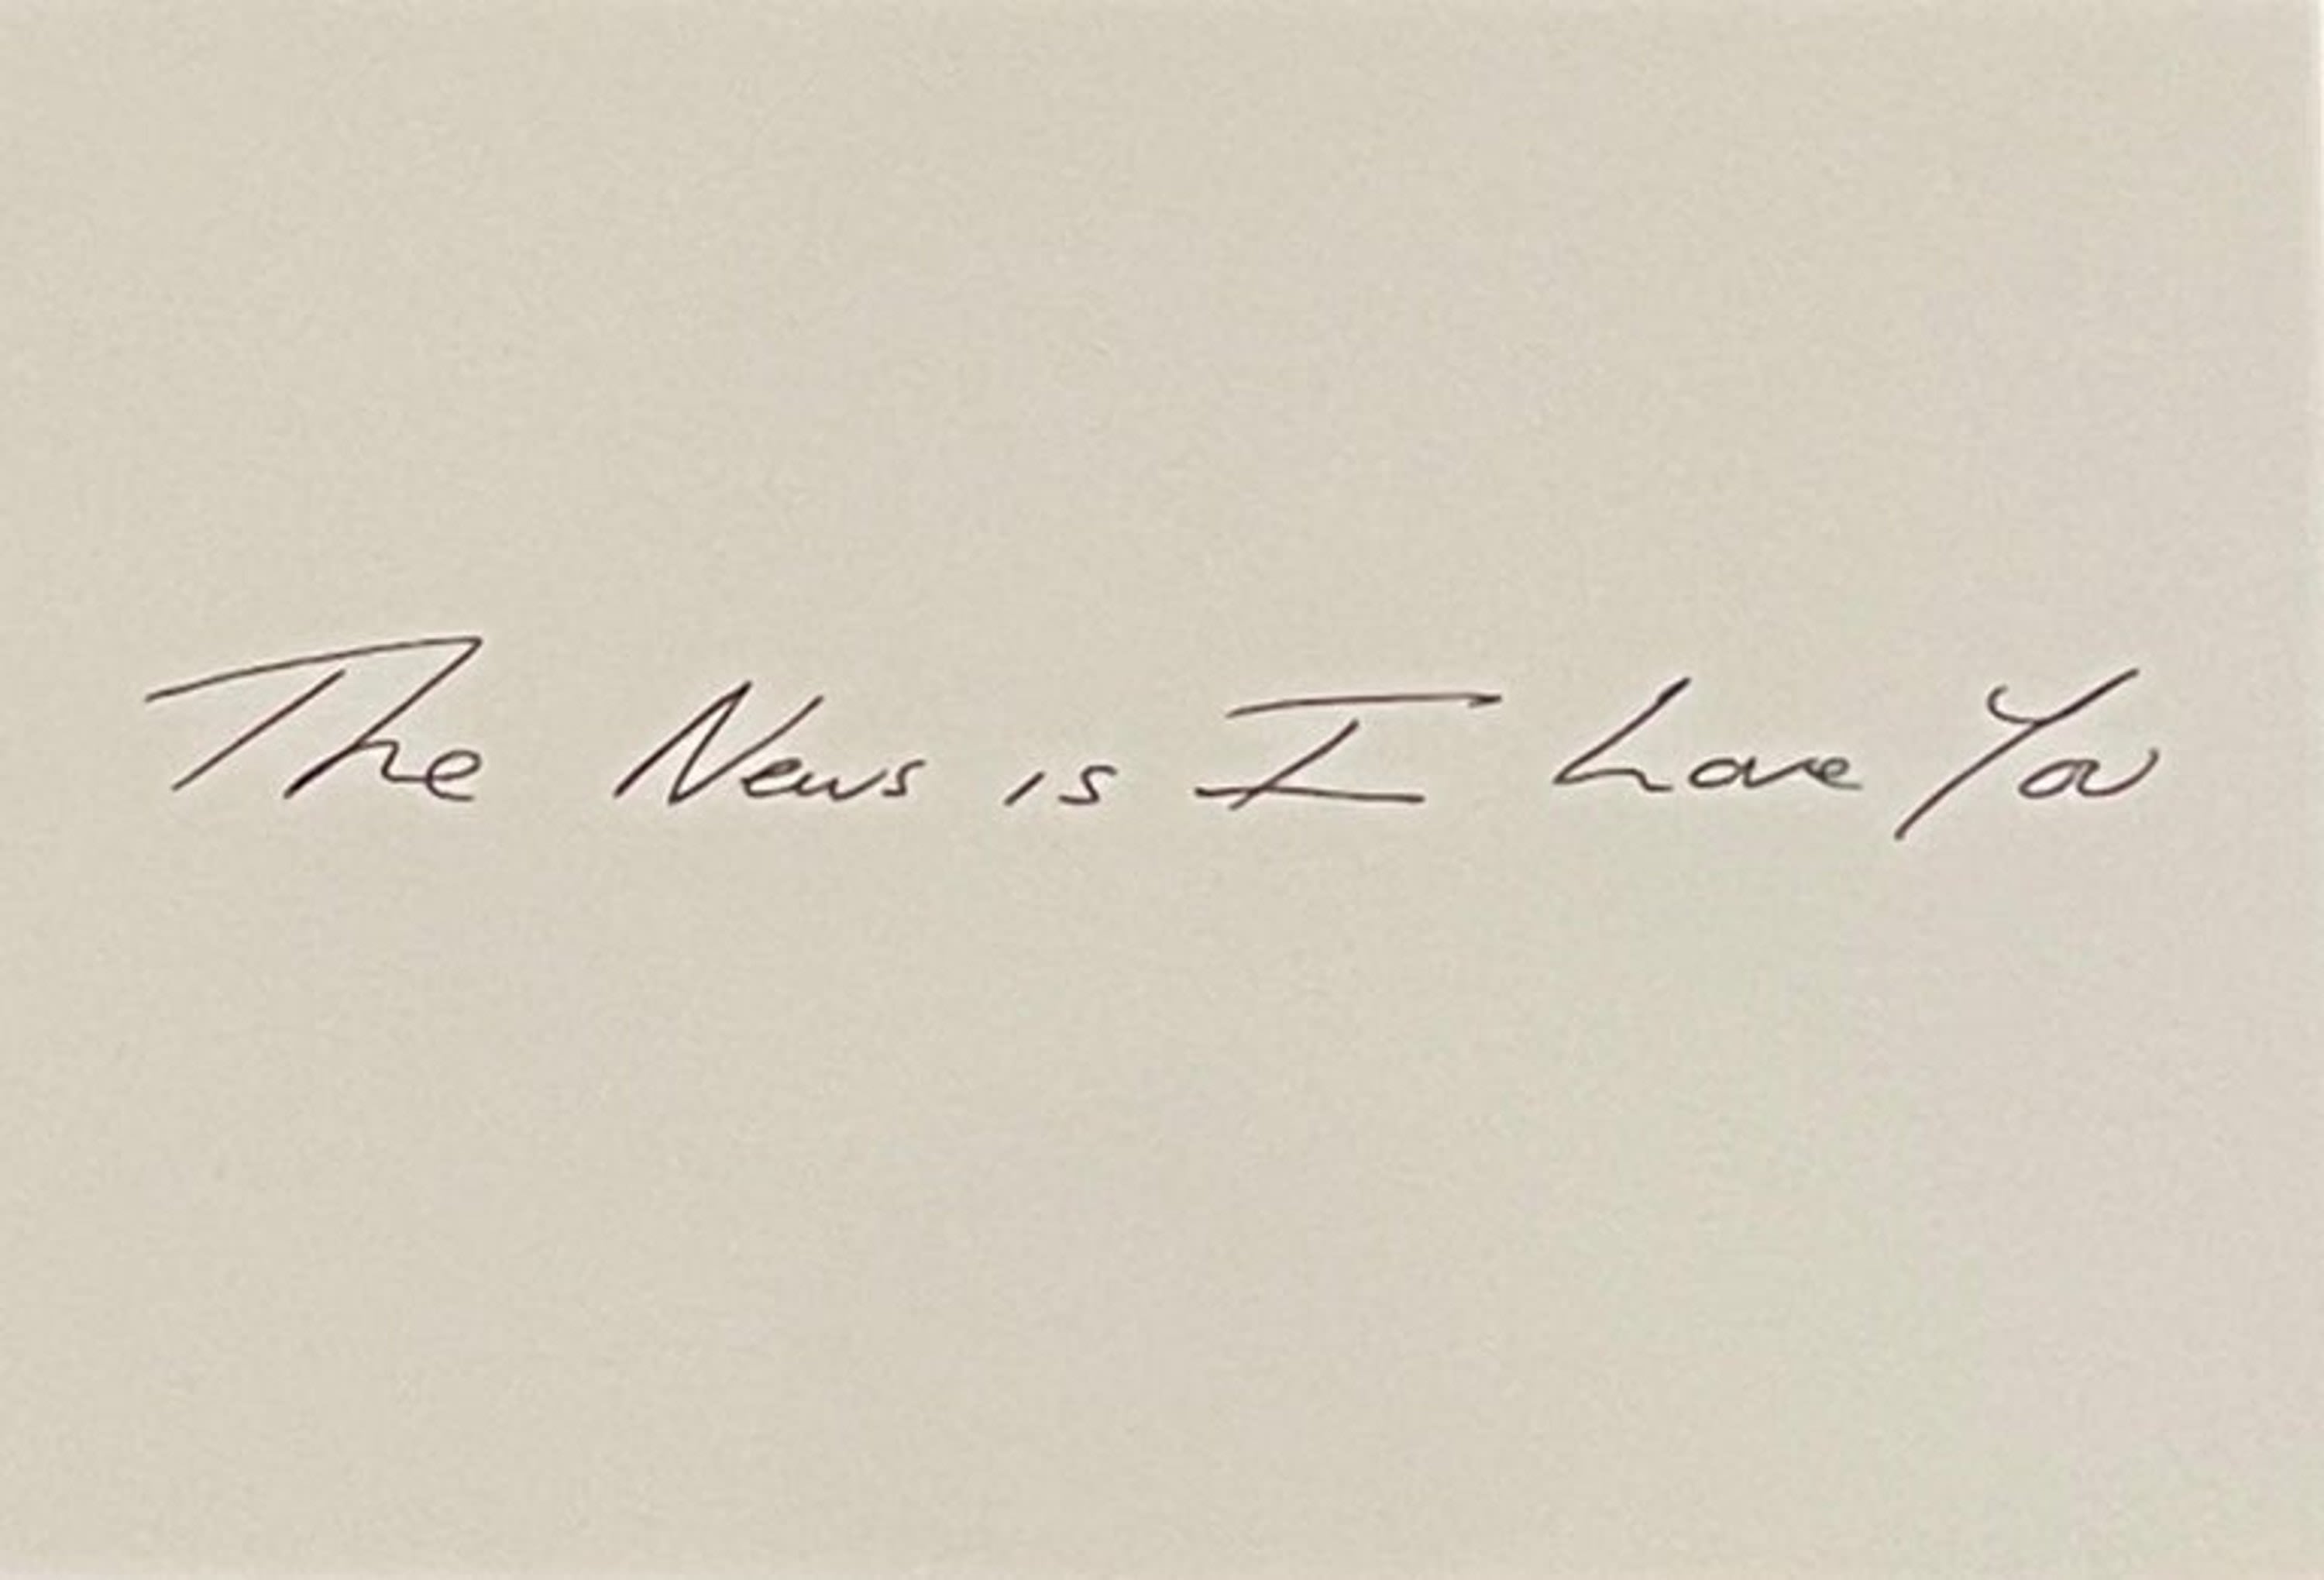 The News is I Love You